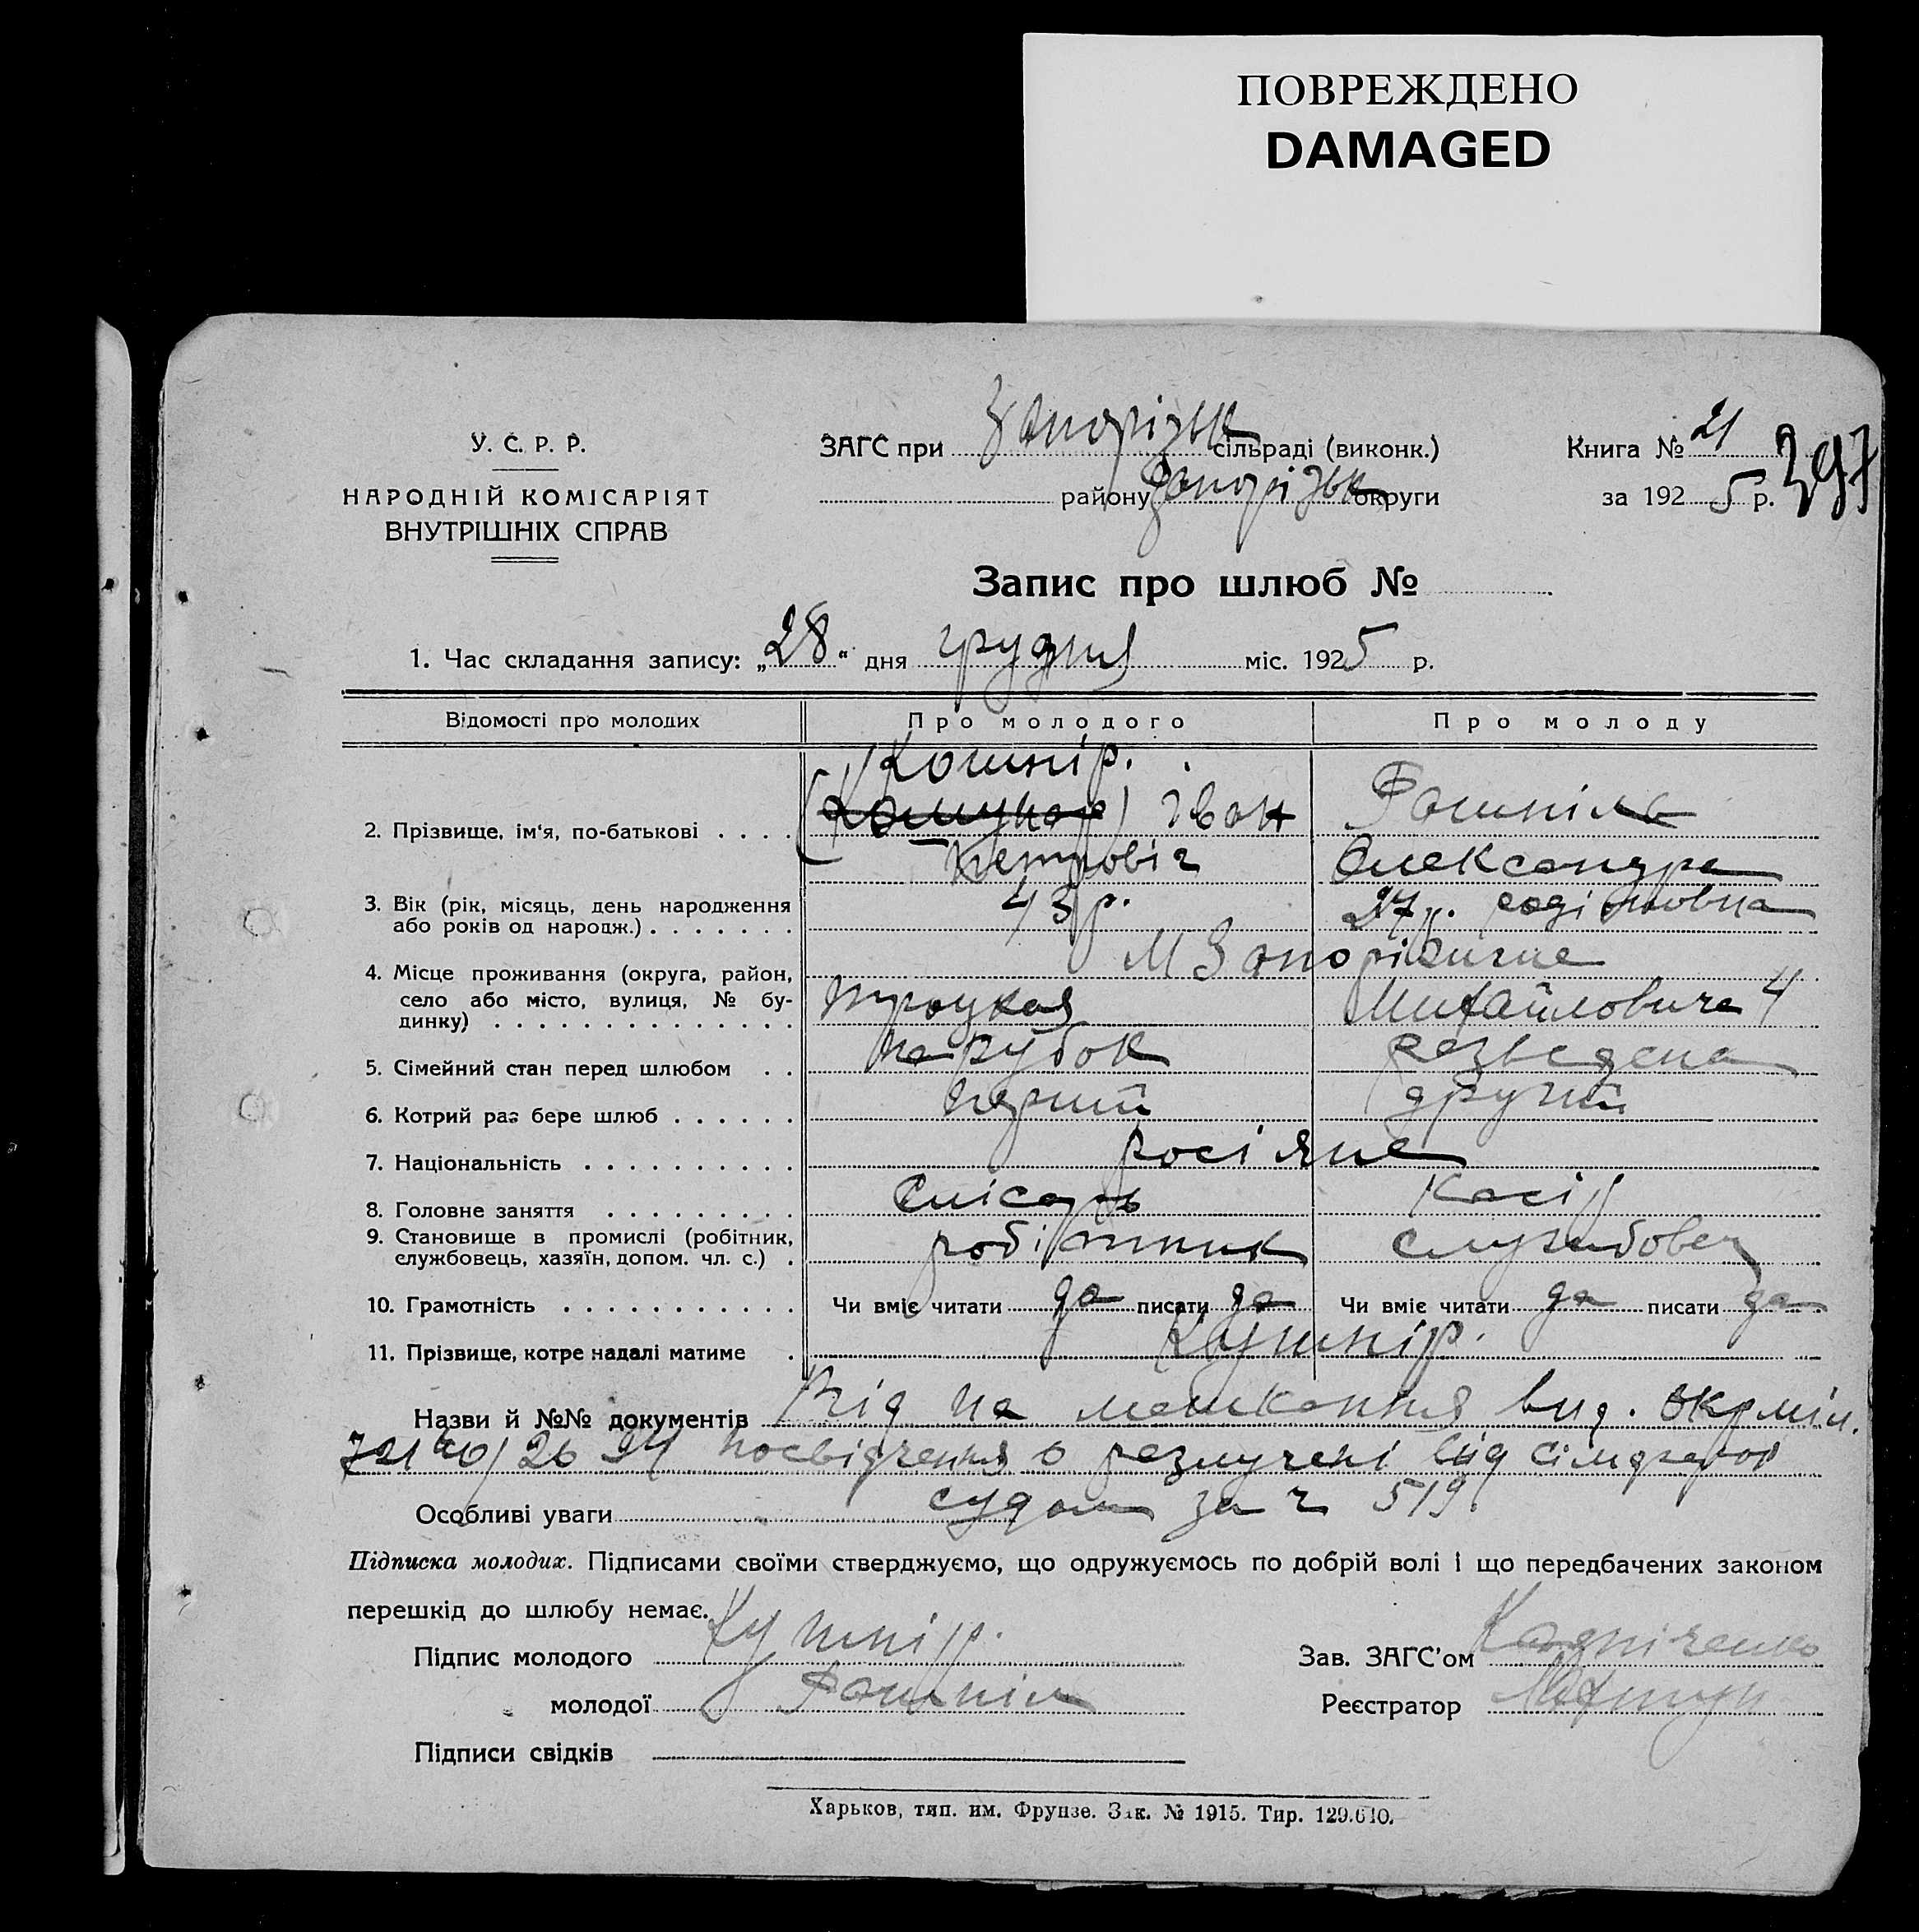 ПОВРЕЖДЕНО
DAMAGED
У. С. Р. Р.
НАРОДНІЙ КОМІСАРІЯТ
ВНУТРІШНІХ СПРАВ
ЗАГС при Запорізьк сільраді (виконк.)
району Запорізьк округи
Книга № 21
за 1925 р.
397
Запис про шлюб №
1. Час складання запису: „28“ дня грудня міс. 1925 р.
Відомості про молодих Про молодого Про молоду
Кошнір.
2. Прізвище, ім‘я, по-батькові . . . . Іван Рашпіль
Петровіч Олександра
3. Вік (рік, місяць, день народження
або років од народж.) . . . . . . . 43 р. 27 р.
4. Місце проживання (округа, район,
село або місто, вулиця, № бу-
динку) . . . . . . . . . . . . . . М Запоріжжє
Троцкая Михайловича 4
5. Сімейний стан перед шлюбом . . парубок розведена
6. Котрий раз бере шлюб . . . . . . перший другий
7. Національність . . . . . . . . . . росіяне
8. Головне заняття . . . . . . . . . Слісарь касір
9. Становище в промислі (робітник,
службовець, хазяїн, допом. чл. с.) . робітник службовец
10. Грамотність . . . . . . . . . . . Чи вміє читати да писати да Чи вміє читати да писати да
11. Прізвище, котре надалі матиме . Кушнір.
Назви й №№ документів Від на мешкання вид. окрміл.
посвідчення о розлучені від
Особливі уваги судом за ч 519.
Підписка молодих. Підписами своїми стверджуємо, що одружуємось по добрій волі і що передбачених законом
перешкід до шлюбу немає.
Підпис молодого Кушнір.
молодої Рашпіль
Підписи свідків
Зав. ЗАГС'ом
Реєстратор
Харьков, тип. им. Фрунзе. Зак. № 1915. Тир. 129.610.